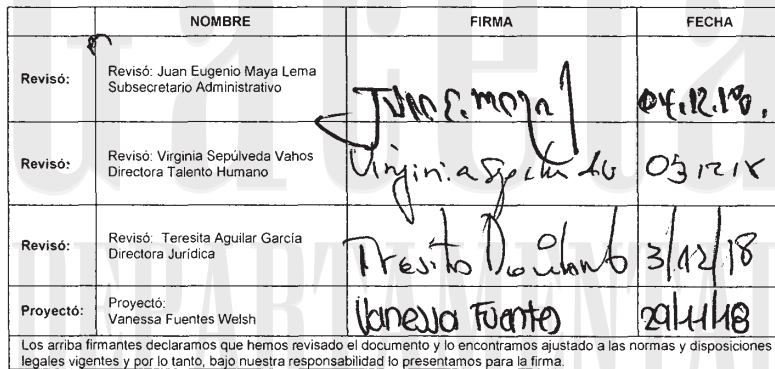 NOMBRE FIRMA FECHA
Revisó: Revisó: Juan Eugenio Maya Lema
Subsecretario Administrativo
Juan E. Maya 04.12.18.
Revisó: Revisó: Virginia Sepúlveda Vahos
Directora Talento Humano
Virginia Sepúlveda V 03 12 18
Revisó: Revisó: Teresita Aguilar García
Directora Jurídica
Teresita 3/12/18
Proyectó: Proyectó:
Vanessa Fuentes Welsh
Vanessa Fuentes 29/11/18
Los arriba firmantes declaramos que hemos revisado el documento y lo encontramos ajustado a las normas y disposiciones
legales vigentes y por lo tanto, bajo nuestra responsabilidad lo presentamos para la firma.